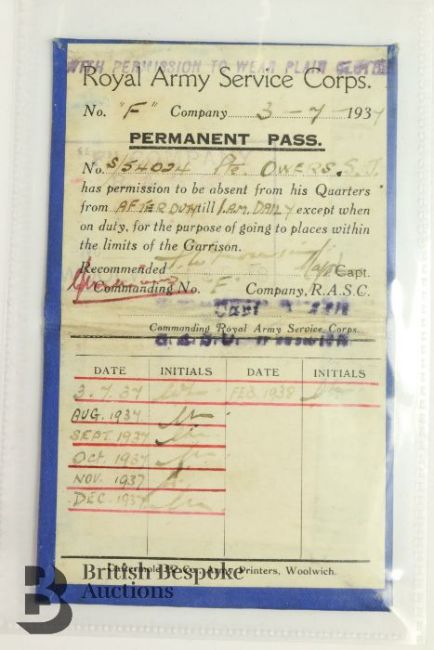 WITH PERMISSION TO WEAR PLAIN CLOTHES
Royal Army Service Corps.
No. "F" Company 3 - 7 - 1937
PERMANENT PASS.
No. S/54024 Pte. OWERS. S.J.
has permission to be absent from his Quarters
from AFTER DUTY till 1 A.M. DAILY except when
on duty, for the purpose of going to places within
the limits of the Garrison.
Recommended Major Capt.
Commanding No. "F" Company, R.A.S.C.
Commanding Royal Army Service Corps.
WOOLWICH
DATE INITIALS DATE INITIALS
3.7.37 FEB. 1938
AUG. 1937
SEPT. 1937
OCT. 1937
NOV. 1937
DEC. 1937
Cattermole & Co., Army Printers, Woolwich.
B British Bespoke
Auctions